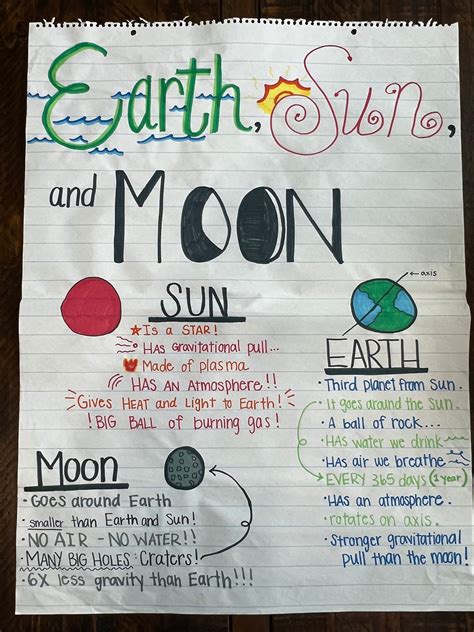 Earth, Sun,
and MOON
SUN
Is a STAR!
Has Gravitational pull...
Made of plasma
HAS AN Atmosphere!!
Gives HEAT and Light to Earth!
!BIG BALL of burning gas!
axis
EARTH
·Third planet from Sun.
·It goes around the Sun.
·A ball of rock...
·Has water we drink
·Has air we breathe
EVERY 365 days (1 year)
·Has an atmosphere.
·rotates on axis.
·Stronger gravitational
pull than the moon!
Moon
·Goes around Earth
·smaller than Earth and Sun!
·NO AIR - NO WATER!!
·MANY BIG HOLES: Craters!
·6X less gravity than Earth!!!